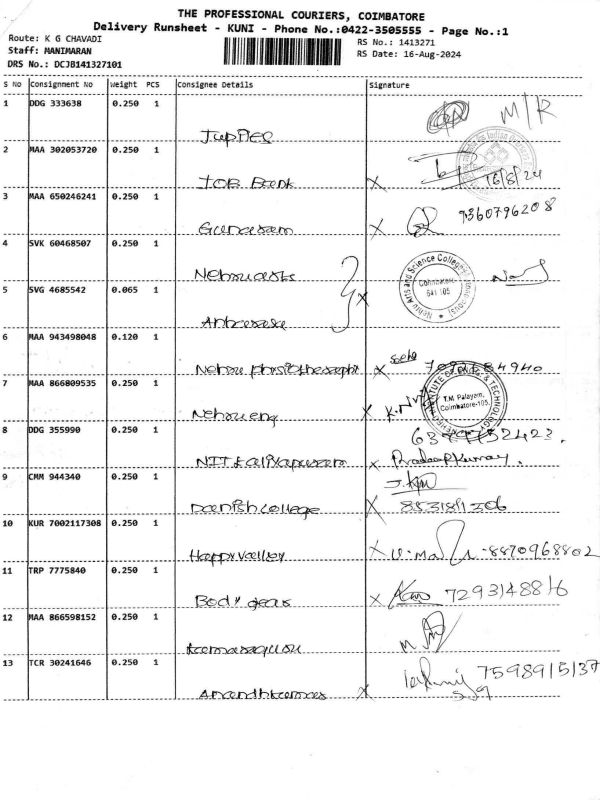 THE PROFESSIONAL COURIERS, COIMBATORE
Delivery Runsheet - KUNI - Phone No.:0422-3505555 - Page No.:1
Route: K G CHAVADI
RS No.: 1413271
Staff: MANIMARAN
RS Date: 16-Aug-2024
DRS No.: DCJB141327101
S No Consignment No Weight PCS Consignee Details Signature
1 DDG 333638 0.250 1
M/R
2 MAA 302053720 0.250 1
IOB Bank 16/8/24
3 MAA 650246241 0.250 1
9360796208
Gunaseram
4 SVK 60468507 0.250 1
Nehru arts
Nehru Arts and Science College
Coimbatore
641 105
5 SVG 4685542 0.065 1
6 MAA 943498048 0.120 1
7 MAA 866809535 0.250 1
Nehru eng
T.M. Palayam,
Coimbatore-105.
8 DDG 355990 0.250 1
Pradeepkumar.
9 CMM 944340 0.250 1
Danish college
10 KUR 7002117308 0.250 1
Happy valley 8870968802
11 TRP 7775840 0.250 1
Body gear 7293148816
12 MAA 866598152 0.250 1
13 TCR 30241646 0.250 1
7598915137
Anandhkumar